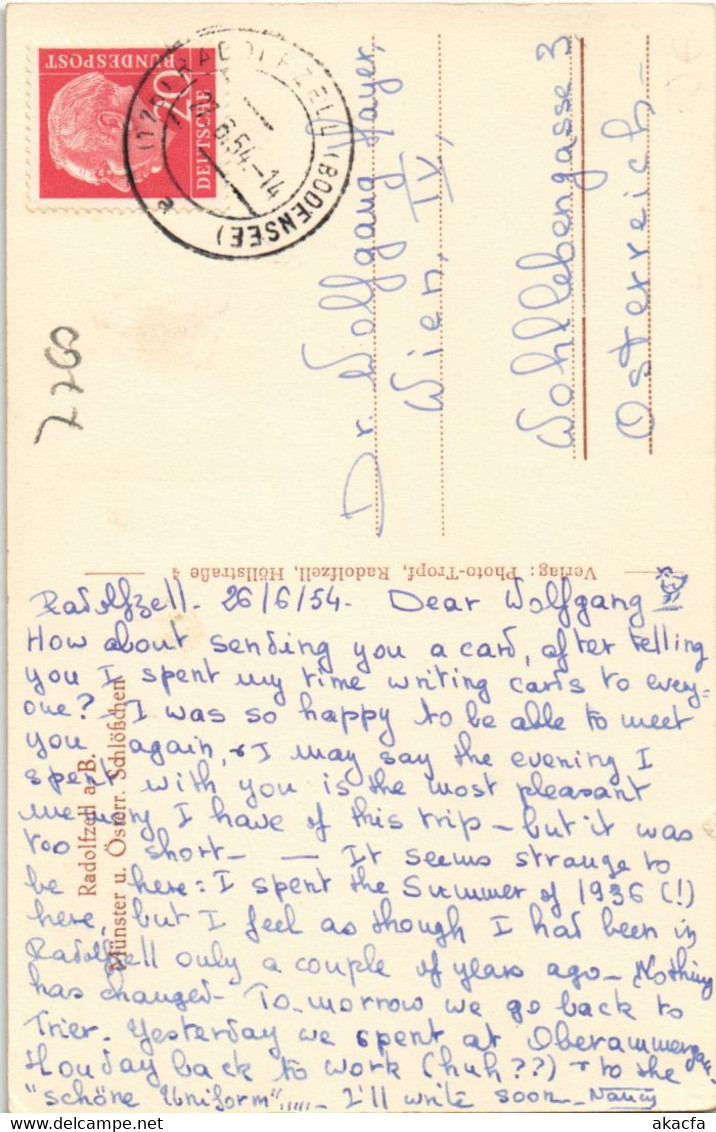 DEUTSCHE
BUNDESPOST
20
RADOLFZELL (BODENSEE)
.6.54.-14
e
7760
Dr. Wolfgang Mayer,
Wien, IV,
Wohllebengasse 3
Österreich-
Verlag: Photo-Tropf, Radolfzell, Höllstraße 4
Radolfzell a. B.
Münster u. Österr. Schlößchen
Radolfzell- 26/6/54- Dear Wolfgang
How about sending you a card, after telling
you I spent my time writing cards to every=
one? - I was so happy to be able to meet
you again, & I may say the evening I
spent with you is the most pleasant
memory I have of this trip - but it was
too short - — It seems strange to
be here: I spent the Summer of 1936 (!)
here, but I feel as though I had been in
Radolfzell only a couple of years ago - Nothing
has changed - To-morrow we go back to
Trier. Yesterday we spent at Oberammergau.
Monday back to work (huh??) & to the
"schöne Uniform"..... I'll write soon - Nancy
akacfa